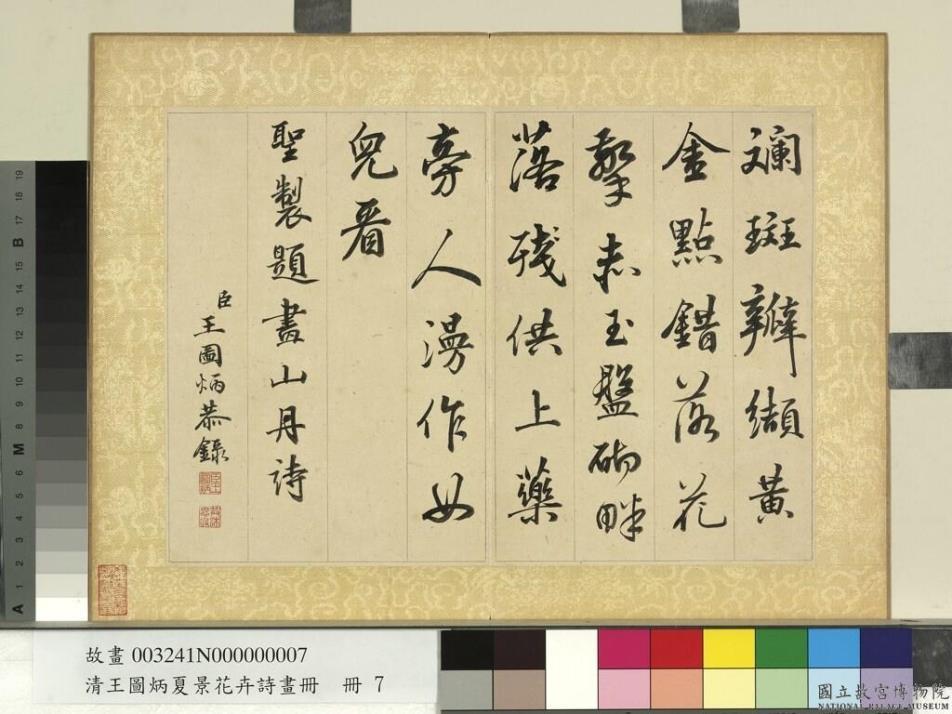 斕斑瓣纈黃
金點錯落花
擎赤玉盤砌畔
落殘供上藥
旁人漫作女
兒看
聖製題畫山丹詩
臣王圖炳恭錄
故畫 003241N000000007
清王圖炳夏景花卉詩畫冊 冊 7
國立故宮博物院
NATIONAL PALACE MUSEUM
A 1 2 3 4 5 6 M 8 9 10 11 12 13 14 15 B 17 18 19